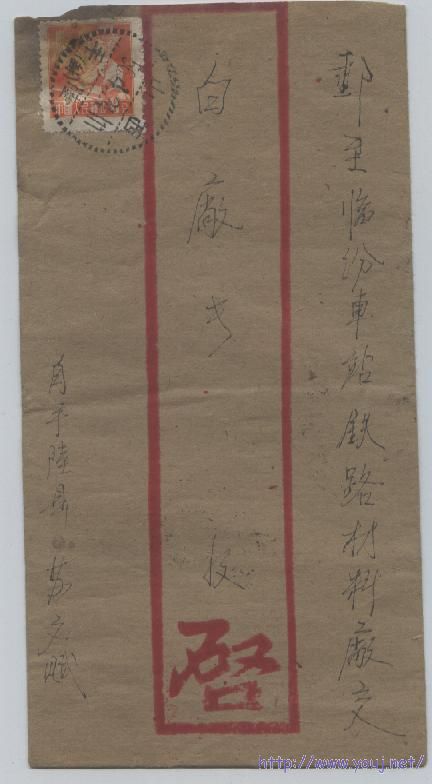 郵至臨汾車站鉄路材料廠交
白廠長 收
啓
自平陸縣 蘇文賦
中国人民邮政
http://www.youj.net/